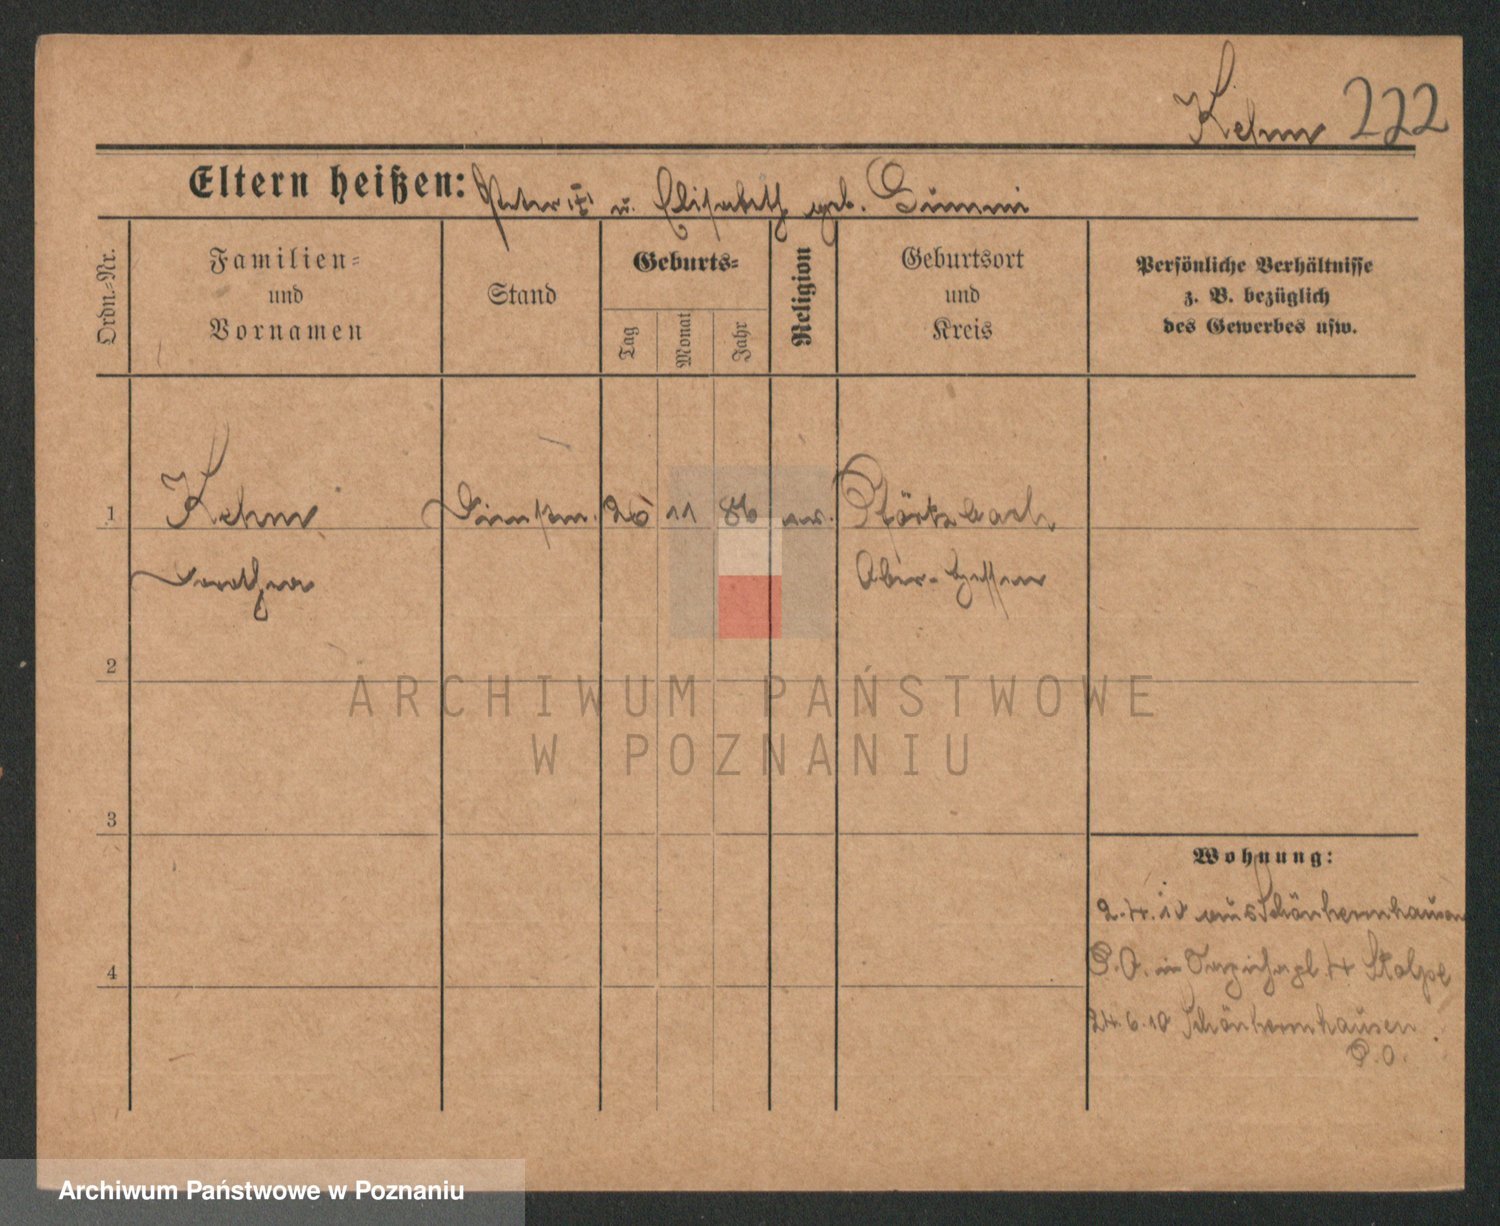 Kehm 222
Eltern heißen: Peter III u. Elisabeth geb.
Ordn.-Nr.
Familien-
und
Vornamen
Stand
Geburts-
Tag
Monat
Jahr
Religion
Geburtsort
und
Kreis
Persönliche Verhältnisse
z. B. bezüglich
des Gewerbes usw.
1 Kehm 26 11 86 ev.
Dorothea Ober-Hessen
2
ARCHIWUM PAŃSTWOWE
W POZNANIU
3
Wohnung:
2.4.10 aus Schönherrnhausen
P.O. in 4 Stolpe
4
24.6.10 Schönherrnhausen
P.O.
Archiwum Państwowe w Poznaniu